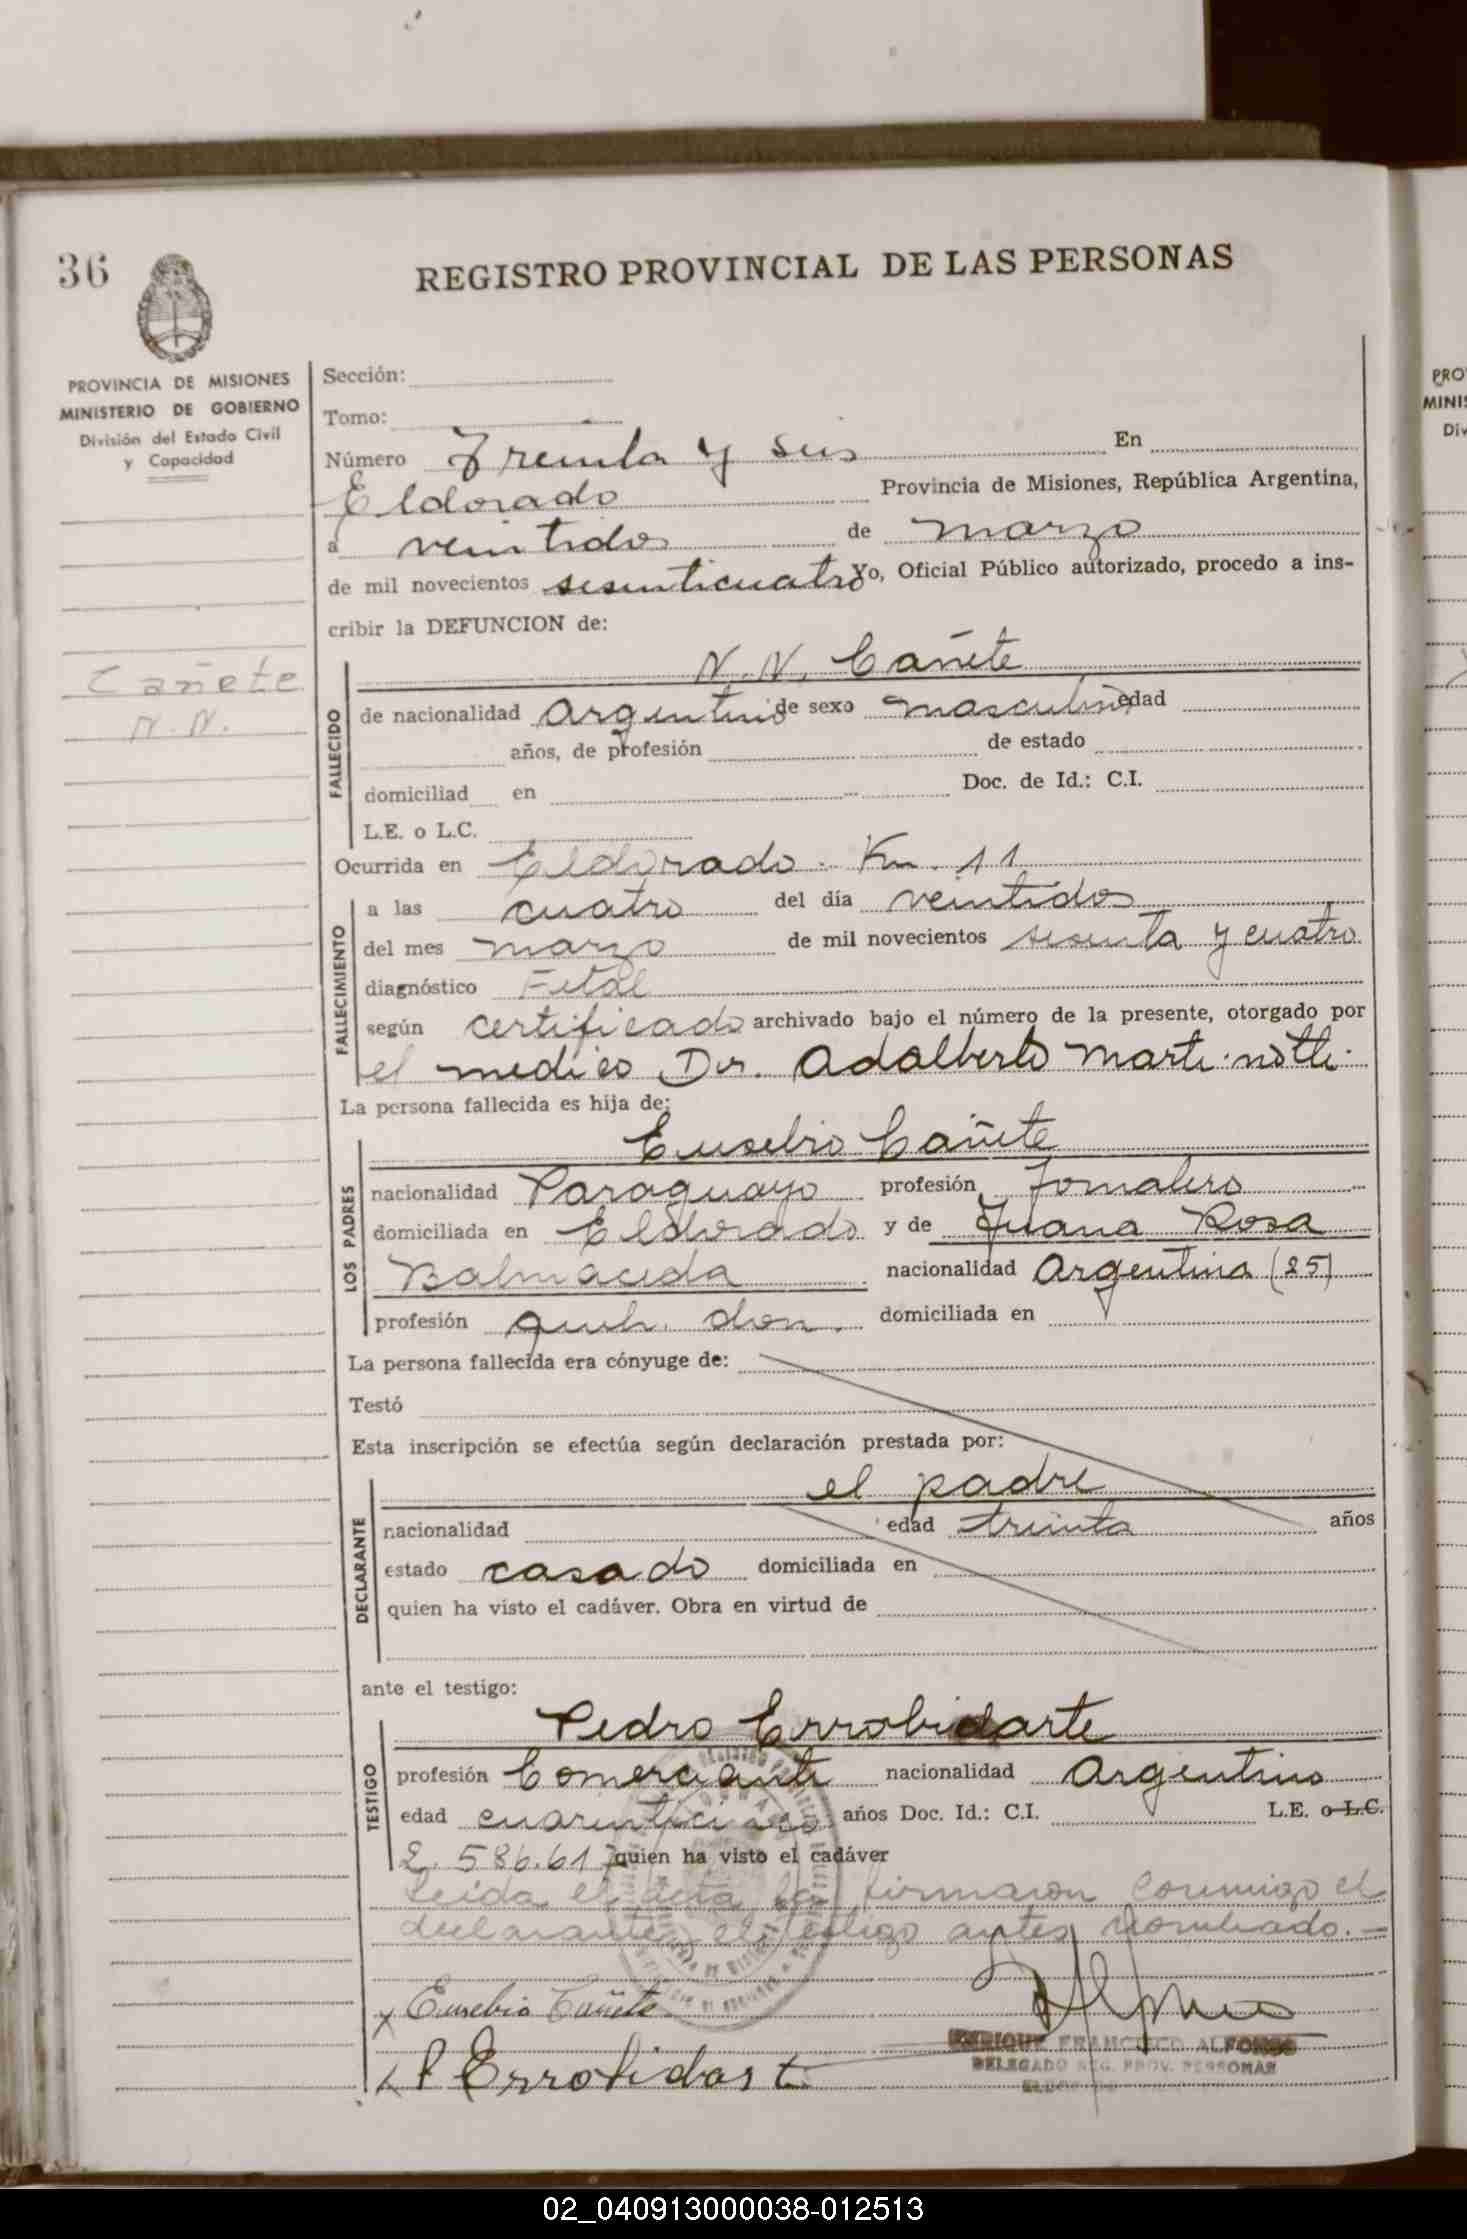 36
REGISTRO PROVINCIAL DE LAS PERSONAS
PROVINCIA DE MISIONES
MINISTERIO DE GOBIERNO
División del Estado Civil
y Capacidad
Cañete
N.N.
Sección:
Tomo:
Número Treinta y seis En
Eldorado Provincia de Misiones, República Argentina,
a veintidos de marzo
de mil novecientos sesenticuatro Yo, Oficial Público autorizado, procedo a ins-
cribir la DEFUNCION de:
N. N. Cañete
FALLECIDO
de nacionalidad Argentino de sexo masculino edad
años, de profesión de estado
domiciliad en Doc. de Id.: C.I.
L.E. o L.C.
Ocurrida en Eldorado. Km. 11
FALLECIMIENTO
a las cuatro del día veintidos
del mes marzo de mil novecientos sesenta y cuatro
diagnóstico Fetal
según certificado archivado bajo el número de la presente, otorgado por
el medico Dr. Adalberto Martinotti
La persona fallecida es hija de:
Eusebio Cañete
LOS PADRES
nacionalidad Paraguayo profesión Jornalero
domiciliada en Eldorado y de Juana Rosa
Balmaceda nacionalidad Argentina (25)
profesión dom. domiciliada en
La persona fallecida era cónyuge de:
Testó
Esta inscripción se efectúa según declaración prestada por:
el padre
DECLARANTE
nacionalidad edad treinta años
estado casado domiciliada en
quien ha visto el cadáver. Obra en virtud de
ante el testigo:
Pedro Errobidarte
TESTIGO
profesión Comerciante nacionalidad Argentino
edad años Doc. Id.: C.I. L.E. o L.C.
2.586.617 quien ha visto el cadáver
Leida el acta la firmaron conmigo el
declarante y el testigo antes nombrado.=
x Eusebio Cañete
x P Errobidart
ENRIQUE FRANCISCO ALFONSO
DELEGADO REG. PROV. PERSONAS
02_040913000038-012513